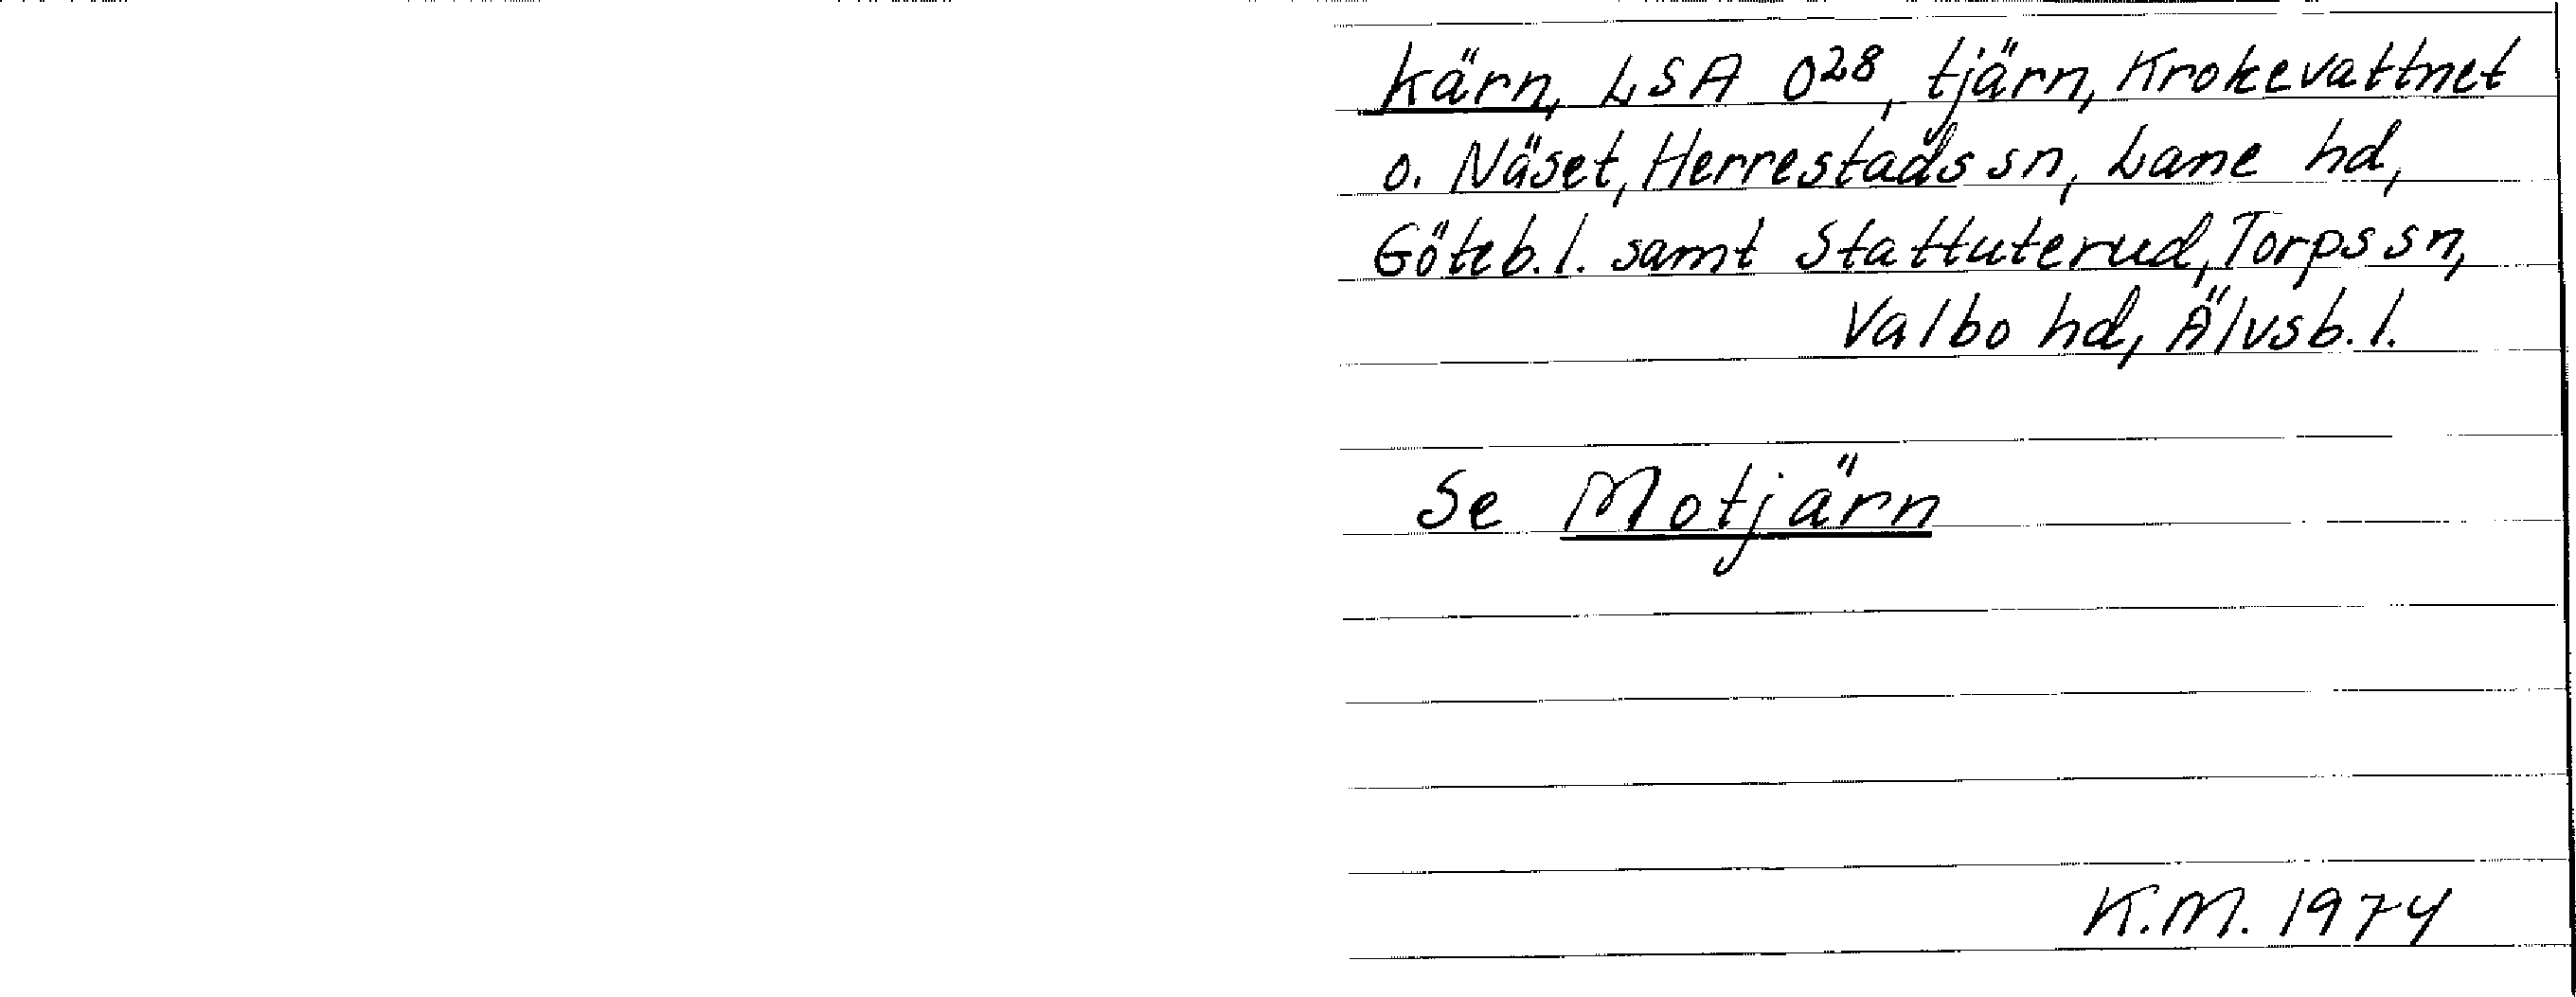 Kärn, LSA O²⁸, tjärn, Krokevattnet
o. Näset, Herrestads sn, Lane hd,
Göteb.l. samt Stattuterud, Torps sn,
Valbo hd, Älvsb.l.
Se Motjärn
K.M. 1974